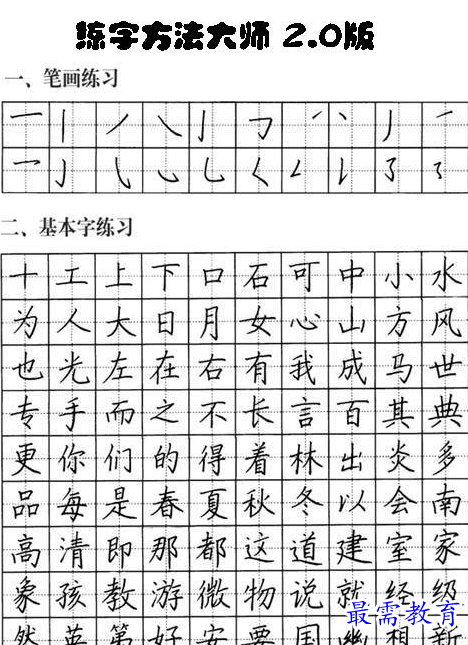 练字方法大师 2.0版
一、笔画练习
二、基本字练习
十工上下口石可中小水
为人大日月女心山方风
也光左在右有我成马世
专手而之不长言百其典
更你们的得着林出炎多
品每是春夏秋冬以会南
高清即那都这道建室家
象孩教游微物说就经级
然英第好安要国幽想新
最需教育